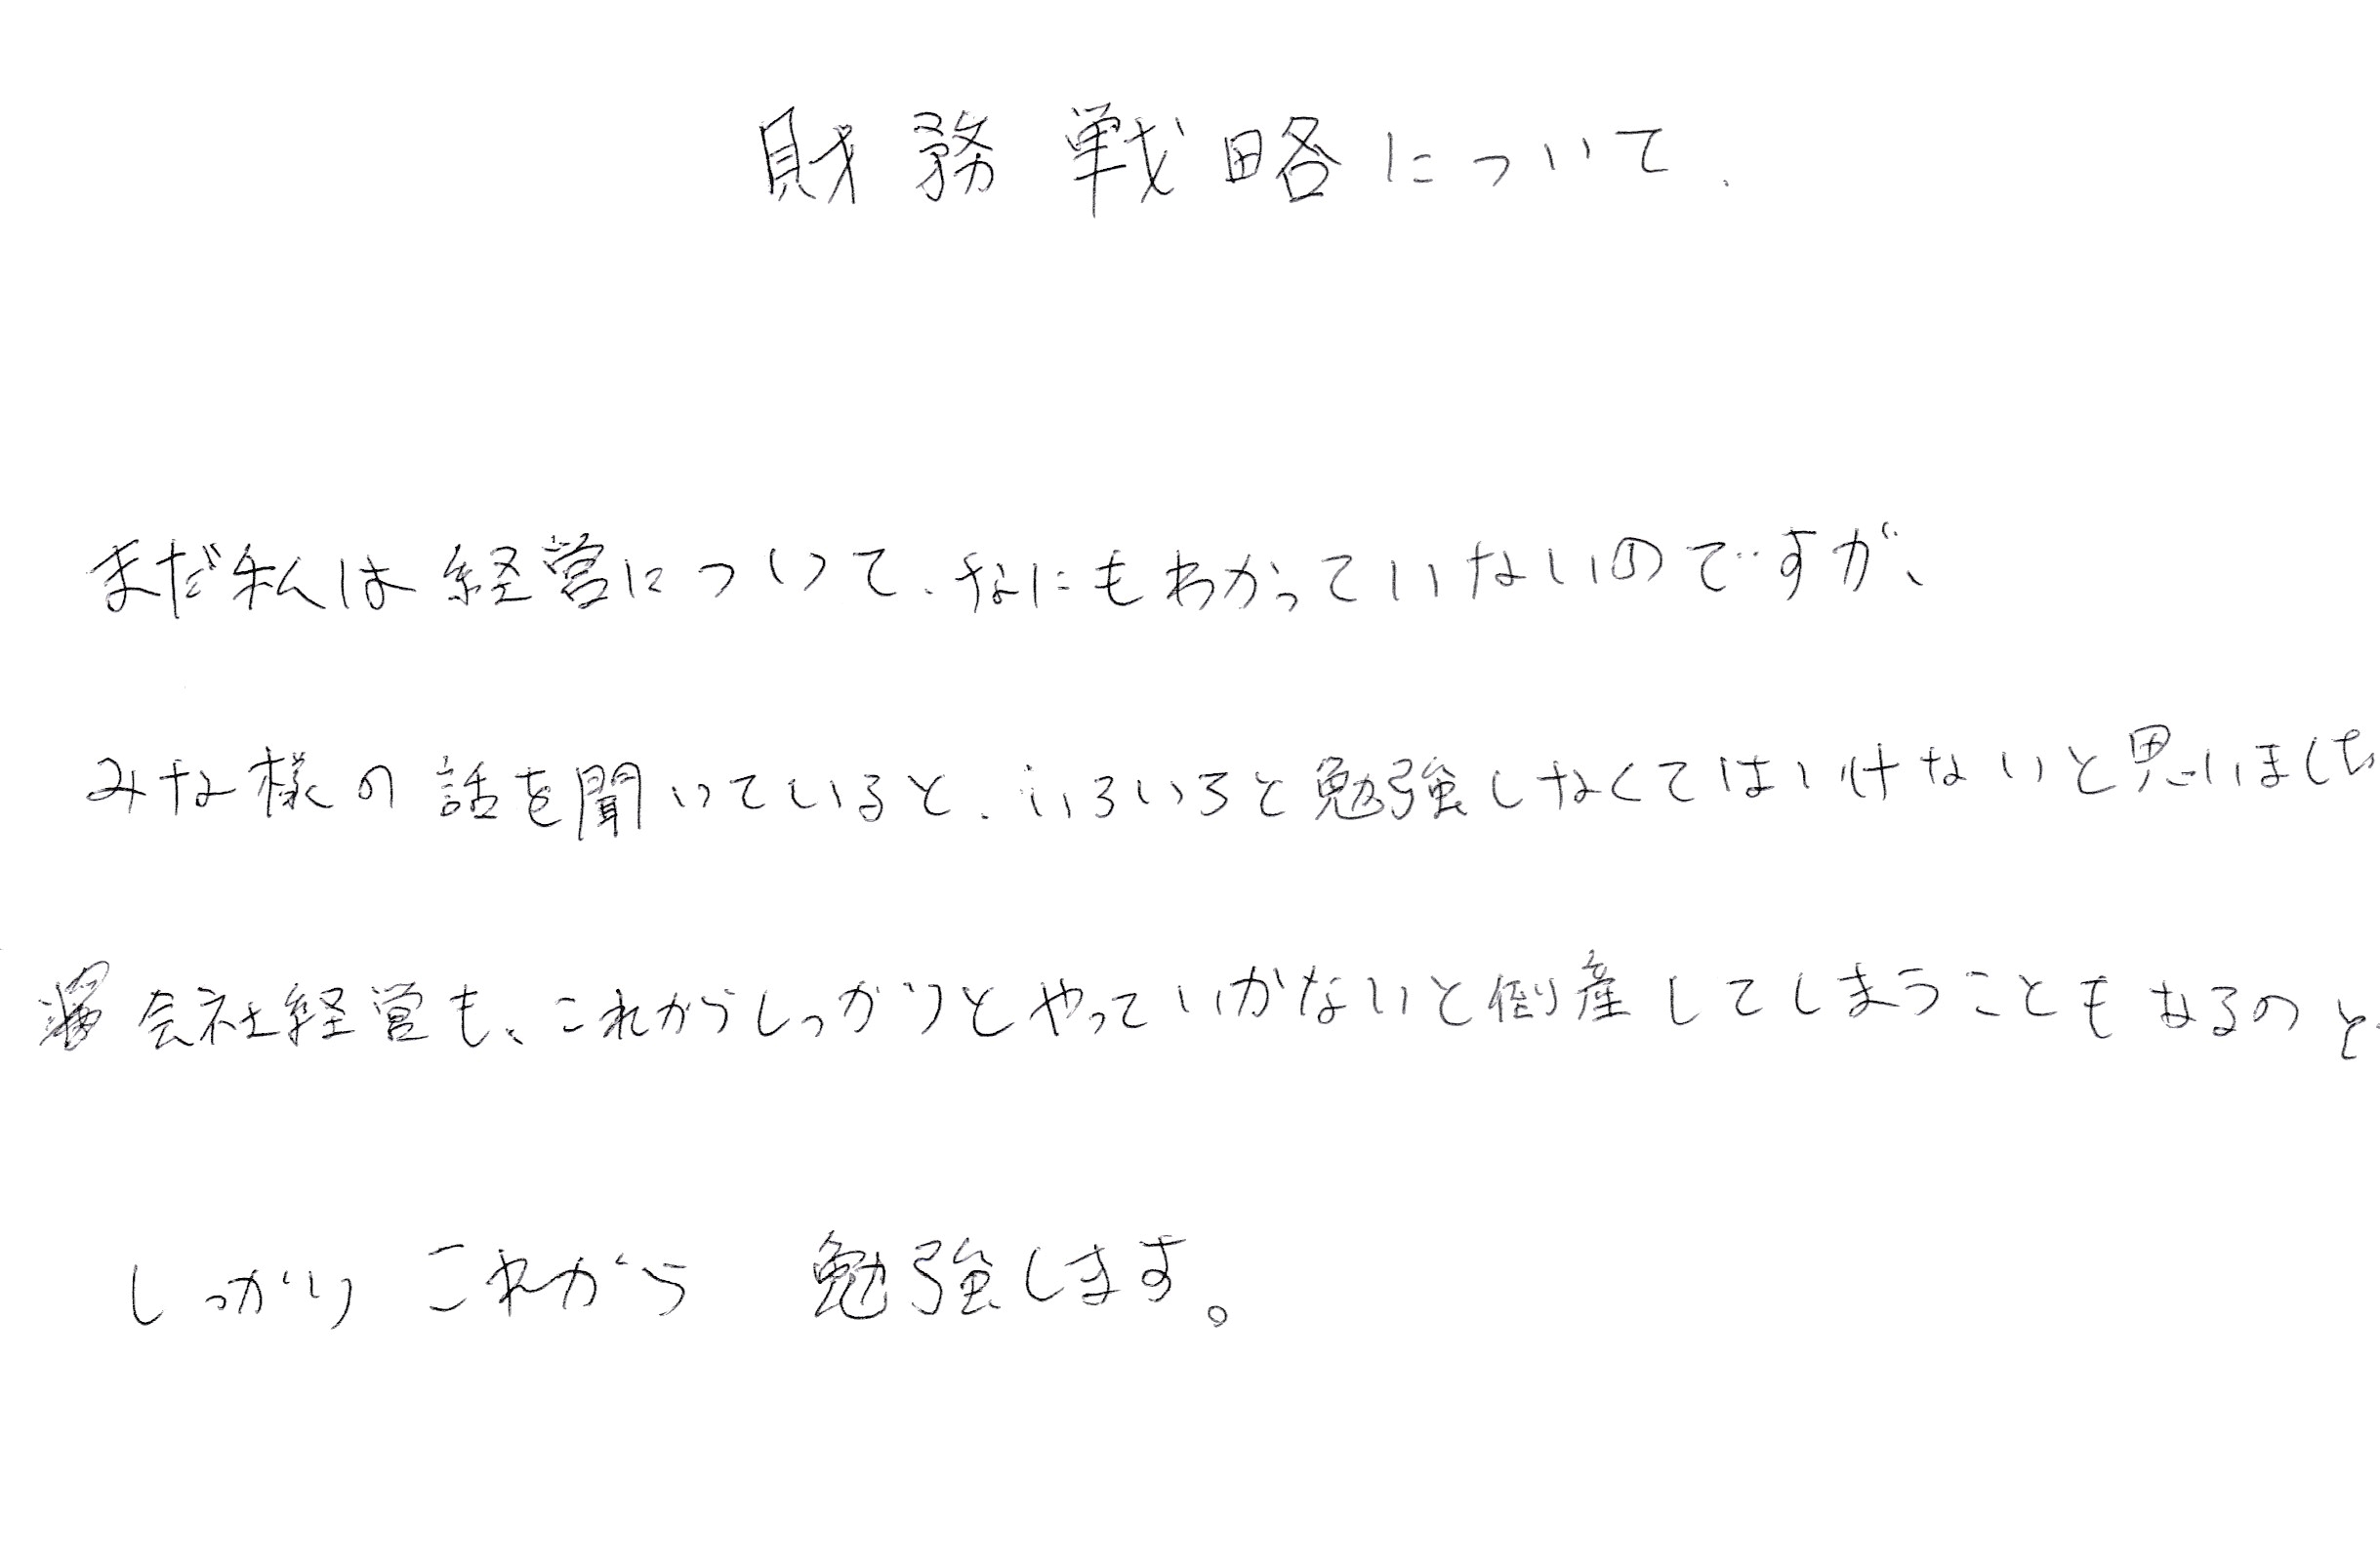 財務戦略について.
まだ私は経営について、なにもわかっていないのですが、
みな様の話を聞いていると、いろいろと勉強しなくてはいけないと思いました
会社経営も、これからしっかりとやっていかないと倒産してしまうこともなるのと
しっかり これから 勉強します。